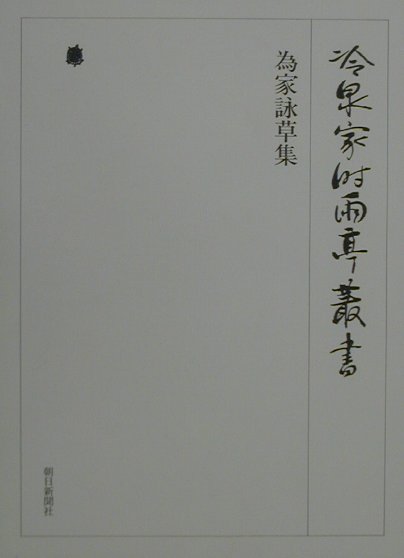 冷泉家时雨亭叢書
為家詠草集
朝日新聞社